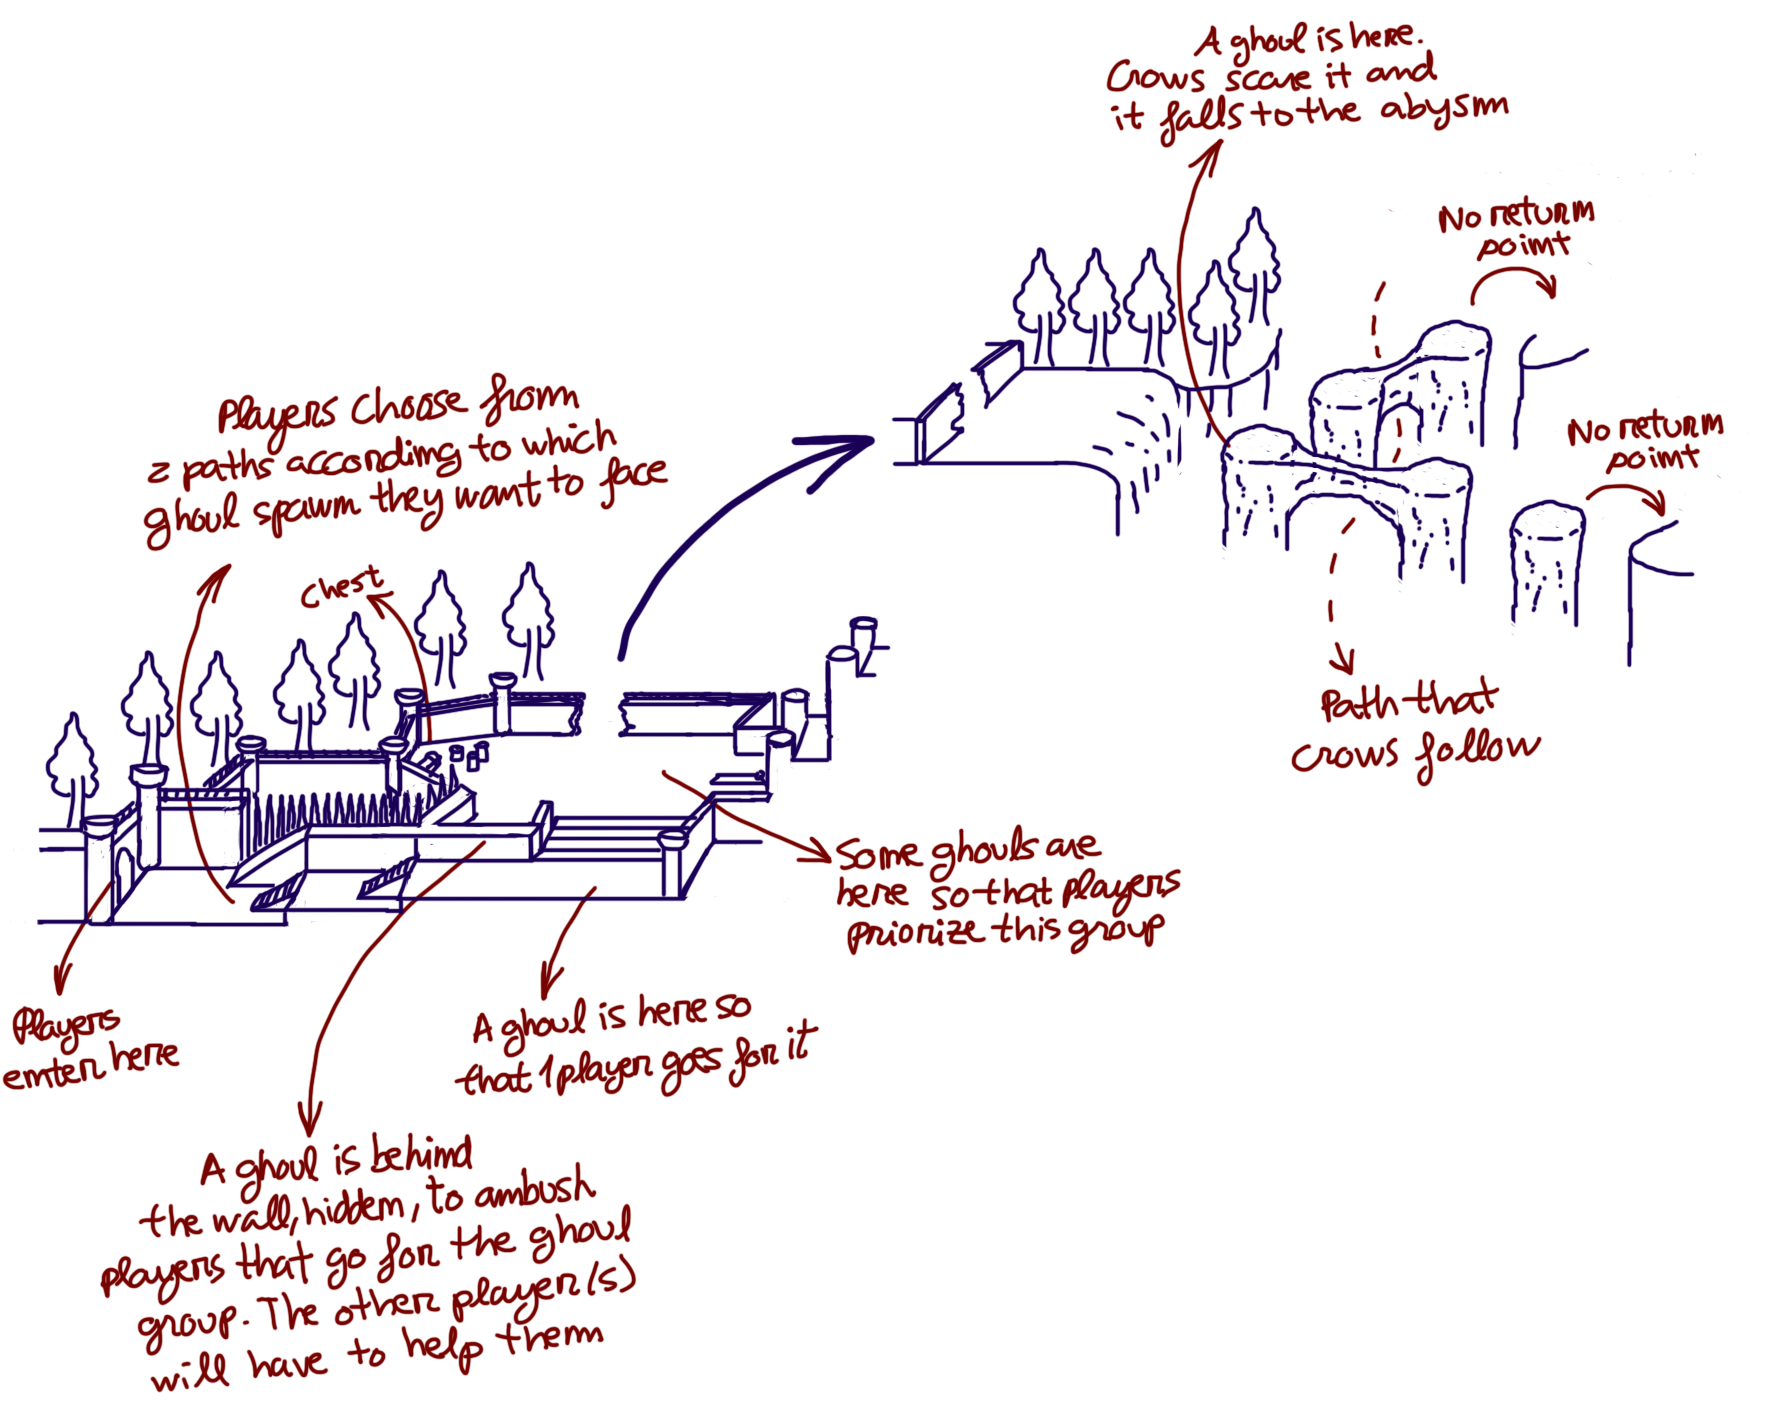 A ghoul is here.
Crows scare it and
it falls to the abysm
No return
point
No return
point
Path that
crows follow
Players choose from
2 paths according to which
ghoul spawn they want to face
Chest
Some ghouls are
here so that players
priorize this group
Players
enter here
A ghoul is here so
that 1 player goes for it
A ghoul is behind
the wall, hidden, to ambush
players that go for the ghoul
group. The other player(s)
will have to help them